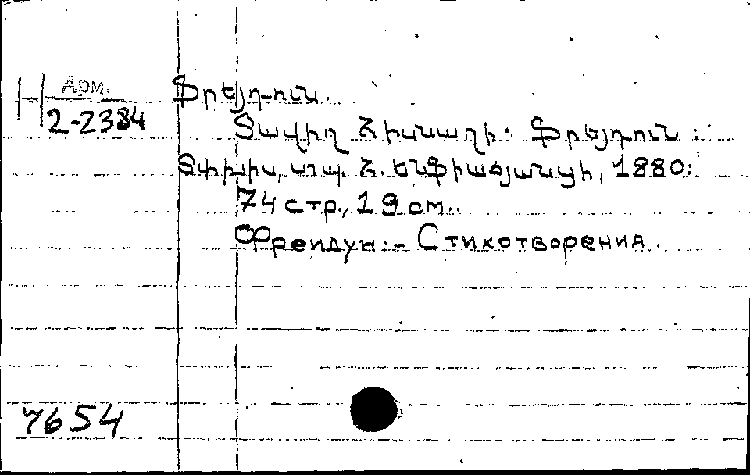 Н Арм.
2-2384
Ֆրեյդուն.
Տաղեր. Ֆրեյդուն:
Տփխիս, տպ. Հ. Էնֆիաճյանցի, 1880.
74 стр., 19 см.
Фрейдун.- Стихотворения.
7654